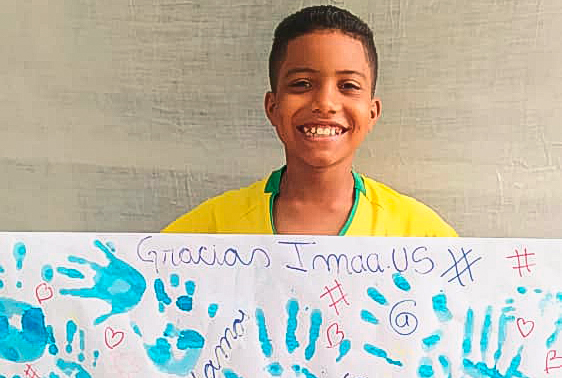 Gracias Imaa.US # #
#
@
amor